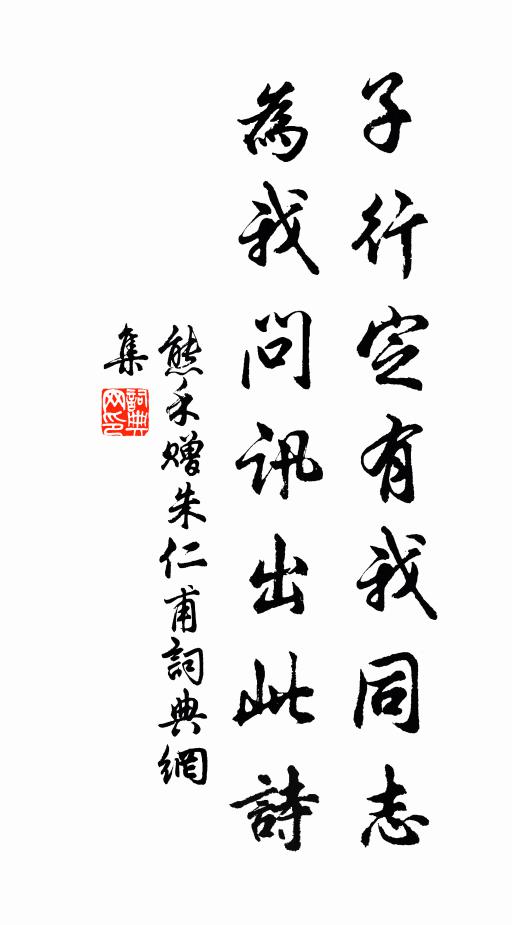 子行定有我同志
為我問訊出此詩
熊禾贈朱仁甫詞典網
集
詞典
网印